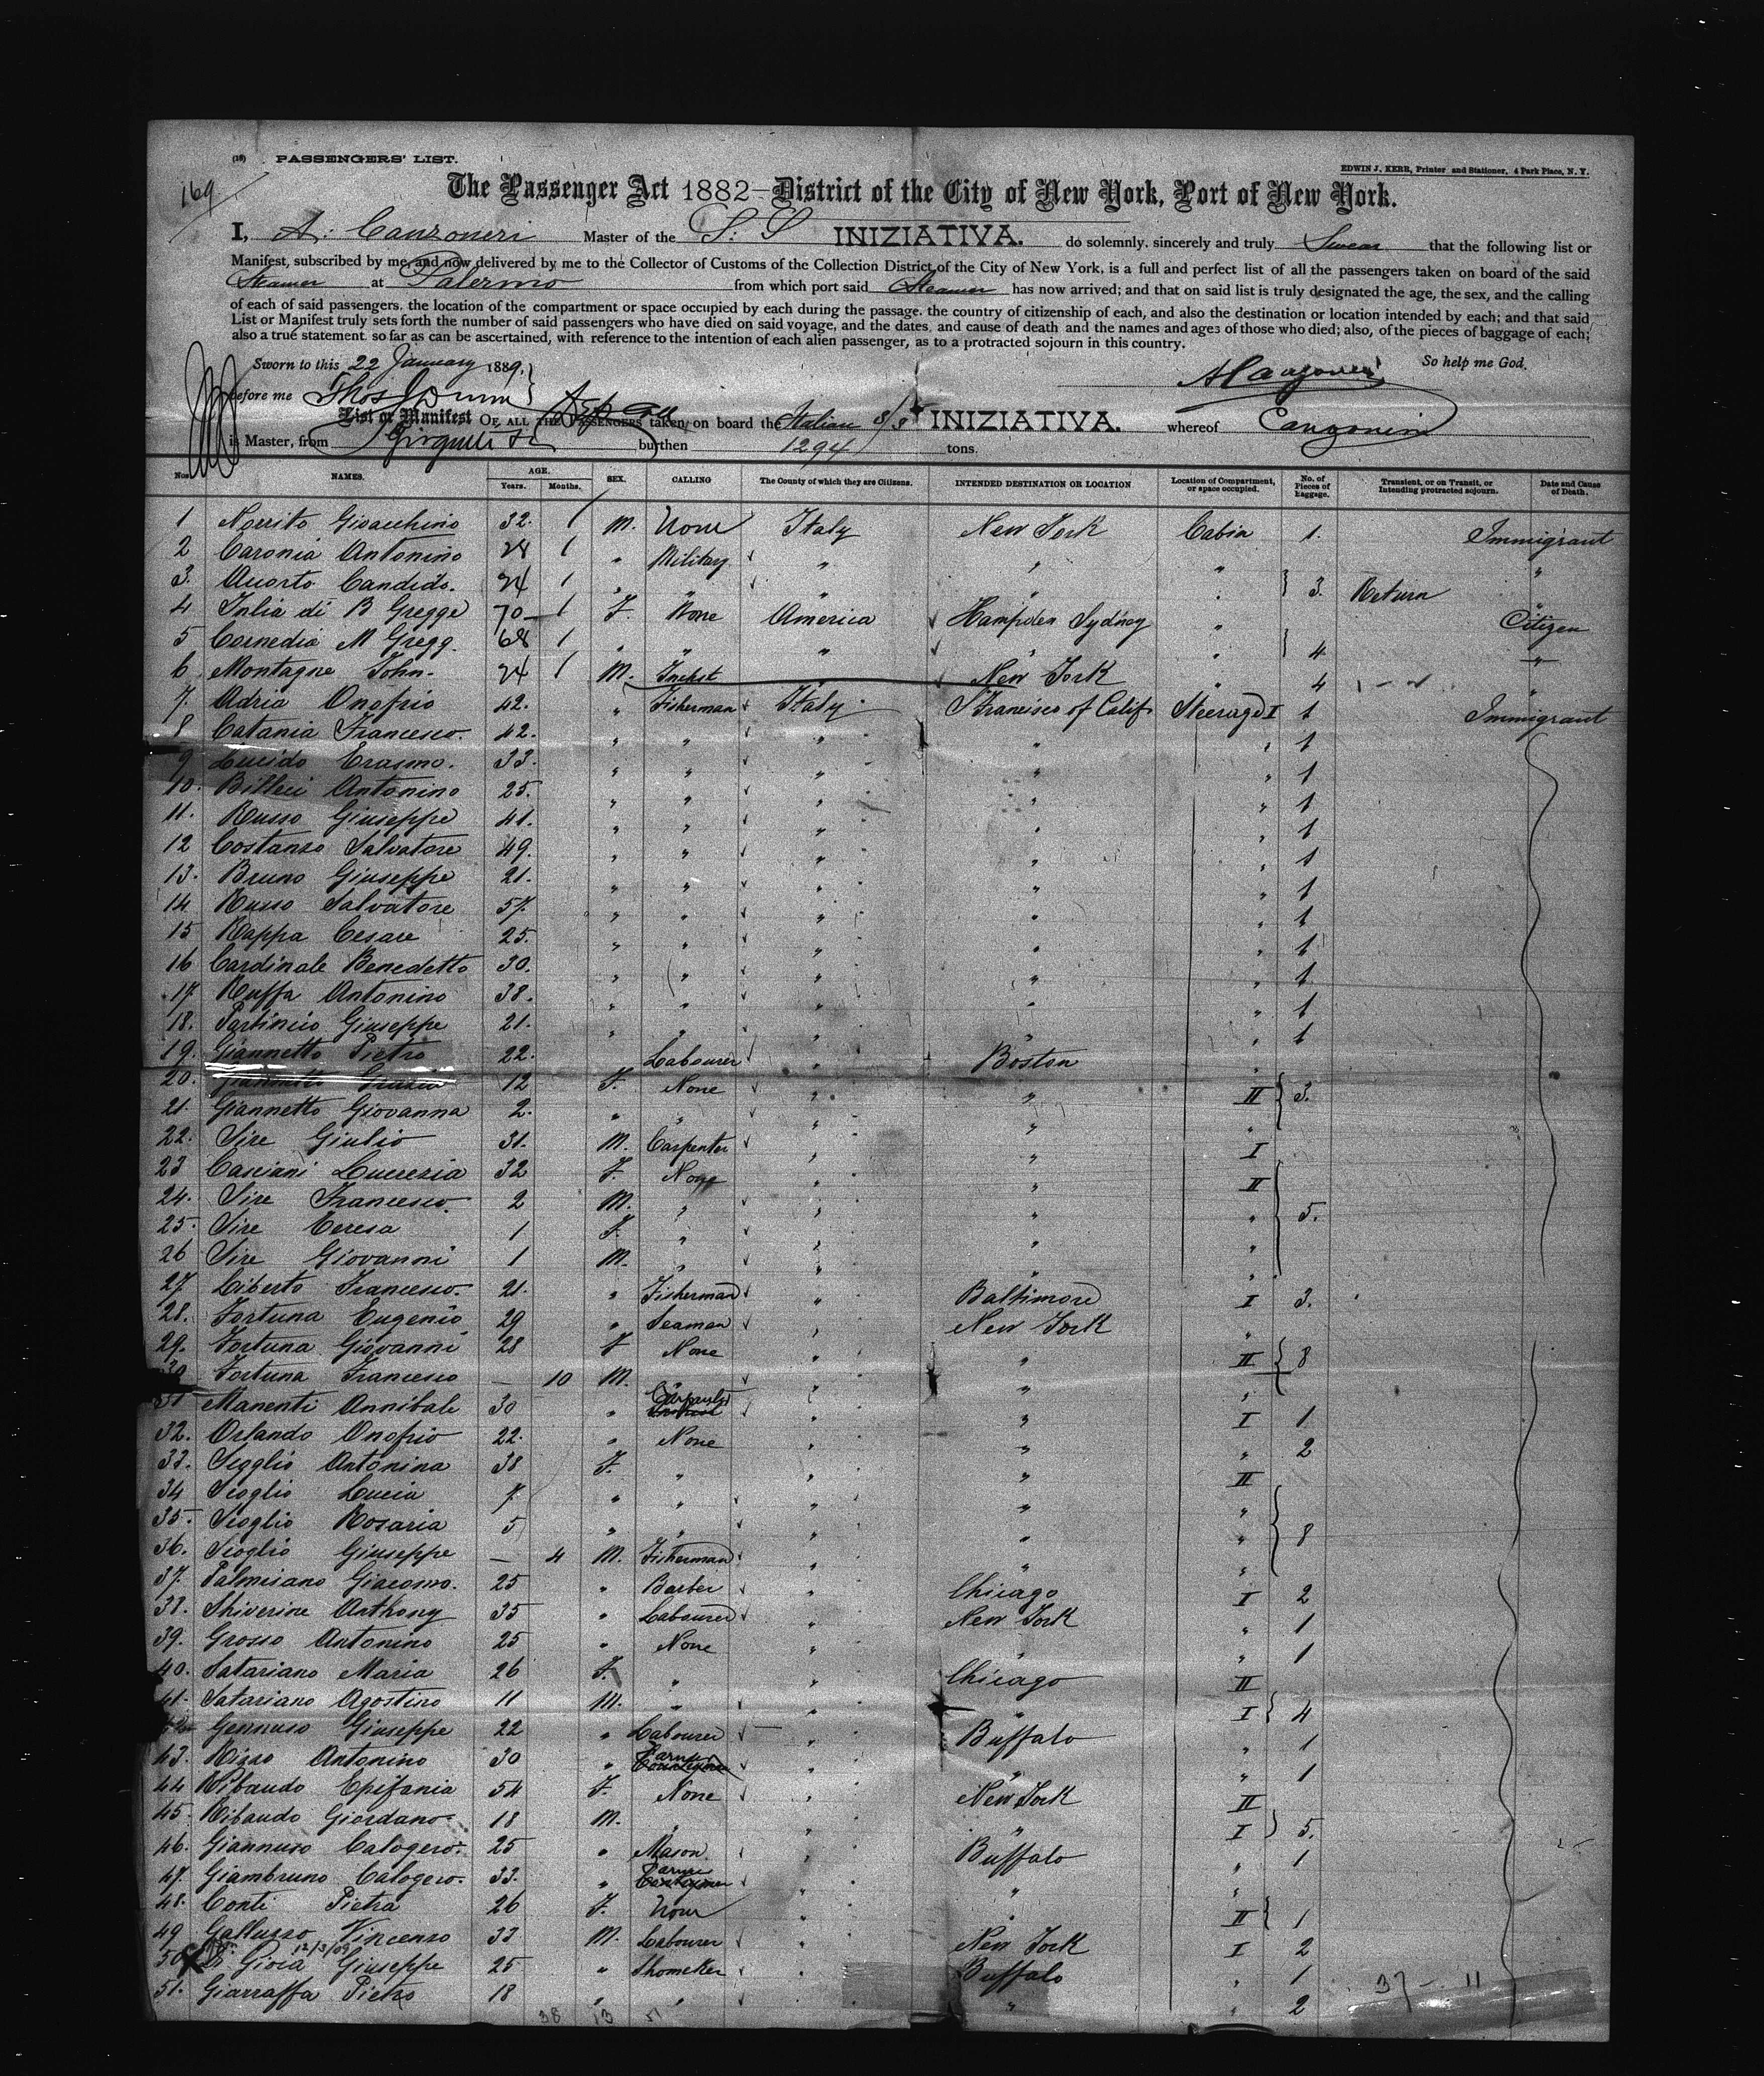 (18) PASSENGERS' LIST.
EDWIN J. KERR, Printer and Stationer, 4 Park Place, N. Y.
169
The Passenger Act 1882—District of the City of New York, Port of New York.
I, A. Canzoneri Master of the S. S INIZIATIVA. do solemnly, sincerely and truly Swear that the following list or
Manifest, subscribed by me, and now delivered by me to the Collector of Customs of the Collection District of the City of New York, is a full and perfect list of all the passengers taken on board of the said
Steamer at Palermo from which port said Steamer has now arrived; and that on said list is truly designated the age, the sex, and the calling
of each of said passengers, the location of the compartment or space occupied by each during the passage, the country of citizenship of each, and also the destination or location intended by each; and that said
List or Manifest truly sets forth the number of said passengers who have died on said voyage, and the dates and cause of death and the names and ages of those who died; also, of the pieces of baggage of each;
also a true statement so far as can be ascertained, with reference to the intention of each alien passenger, as to a protracted sojourn in this country.
Sworn to this 22 January 1889. So help me God.
before me Thos Dunn A Canzoneri
List or Manifest OF ALL THE PASSENGERS taken on board the Italian S/S INIZIATIVA. whereof Canzoneri
is Master, from burthen 1294 tons.
Nos. NAMES. AGE. Years. Months. SEX. CALLING The County of which they are Citizens. INTENDED DESTINATION OR LOCATION Location of Compartment, or space occupied. No. of Pieces of baggage. Transient, or on Transit, or Intending protracted sojourn. Date and Cause of Death.
1 Norrito Gioacchino 32. 1 M. None Italy New York Cabin 1. Immigrant
2 Caronia Antonino 28 1 " Military " " " "
3. Auorto Candido. 24 1 " " " " " 3. Return "
4 Julia di B Gregge 70 1 F. None America Hampden Sydney " Citizen
5 Cornedia M Gregg. 68 1 " " " " " 4 "
6 Montagne John. 24 1 M. New York " 4 "
7. Adria Onofrio 42. " Fisherman Italy S Francisco of Calif. Steerage I 1 Immigrant
8 Catania Francesco. 42. " " " " " 1
9 Lucido Erasmo. 33. " " " " " 1
10. Billeci Antonino 25. " " " " " 1
11. Russo Giuseppe 41. " " " " " 1
12 Costanzo Salvatore 49. " " " " " 1
13. Bruno Giuseppe 21. " " " " " 1
14 Russo Salvatore 57. " " " " " 1
15 Rappa Cesare 25. " " " " " 1
16 Cardinale Benedetto 30. " " " " " 1
17. Ruffa Antonino 38. " " " " " 1
18. Partinico Giuseppe 21. " " " " " 1
19. Giannetto Pietro 22. Labourer " Boston "
20. Giannetto 12 F. None " " II 3.
21. Giannetto Giovanna 2. " " " " "
22. Sire Giulio 31. M. Carpenter " " I
23 Casciani Lucrezia 32 F. None " " II
24. Sire Francesco. 2 M. " " " " 5.
25. Sire Teresa 1 F. " " " "
26 Sire Giovanni 1 M. " " " "
27. Liberto Francesco. 21. " Fisherman " Baltimore I 3.
28. Fortuna Eugenio 29 " Seaman " New York "
29. Fortuna Giovanni 28 F None " " II 8
30 Fortuna Francesco — 10 M. " " " "
31 Manenti Annibale 30 " Carpenter " " I 1
32. Orlando Onofrio 22. " None " " " 2
33. Scoglio Antonina 38 F. " " " II
34 Scoglio Lucia 7. " " " " "
35. Scoglio Rosaria 5 " " " " " 8
36. Scoglio Giuseppe — 4 M. Fisherman " " "
37. Palmisano Giacomo. 25 " Barber " Chicago I 2
38. Shiverine Anthony 35 " Labourer " New York " 1
39. Grosso Antonino 25 " None " " " 1
40. Satariano Maria 26 F. " " Chicago II
41. Satariano Agostino 11 M. " " " I 4
42 Gennuso Giuseppe 22 " Labourer " Buffalo " 1
43. Rizzo Antonino 30 " Farmer " " " 1
44 Ribaudo Epifania 54 F. None " New York II
45. Ribaudo Giordano 18 M. " " " I 5.
46. Giannuso Calogero. 25 " Mason " Buffalo " 1
47. Giambruno Calogero. 33. " Farmer " " "
48. Conti Pietra 26 F. None " " II 1
49 Galluzzo Vincenzo 33 M. Labourer " New York I 2
12/3/09
50 Di Gioia Giuseppe 25 " Shomeker " Buffalo " 1
51. Giarraffa Pietro 18 " " " " " 2
37 — 11
38 13